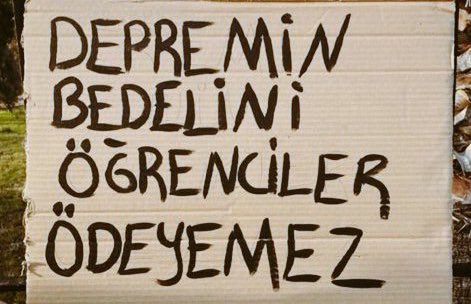 DEPREMİN
BEDELİNİ
ÖĞRENCİLER
ÖDEYEMEZ